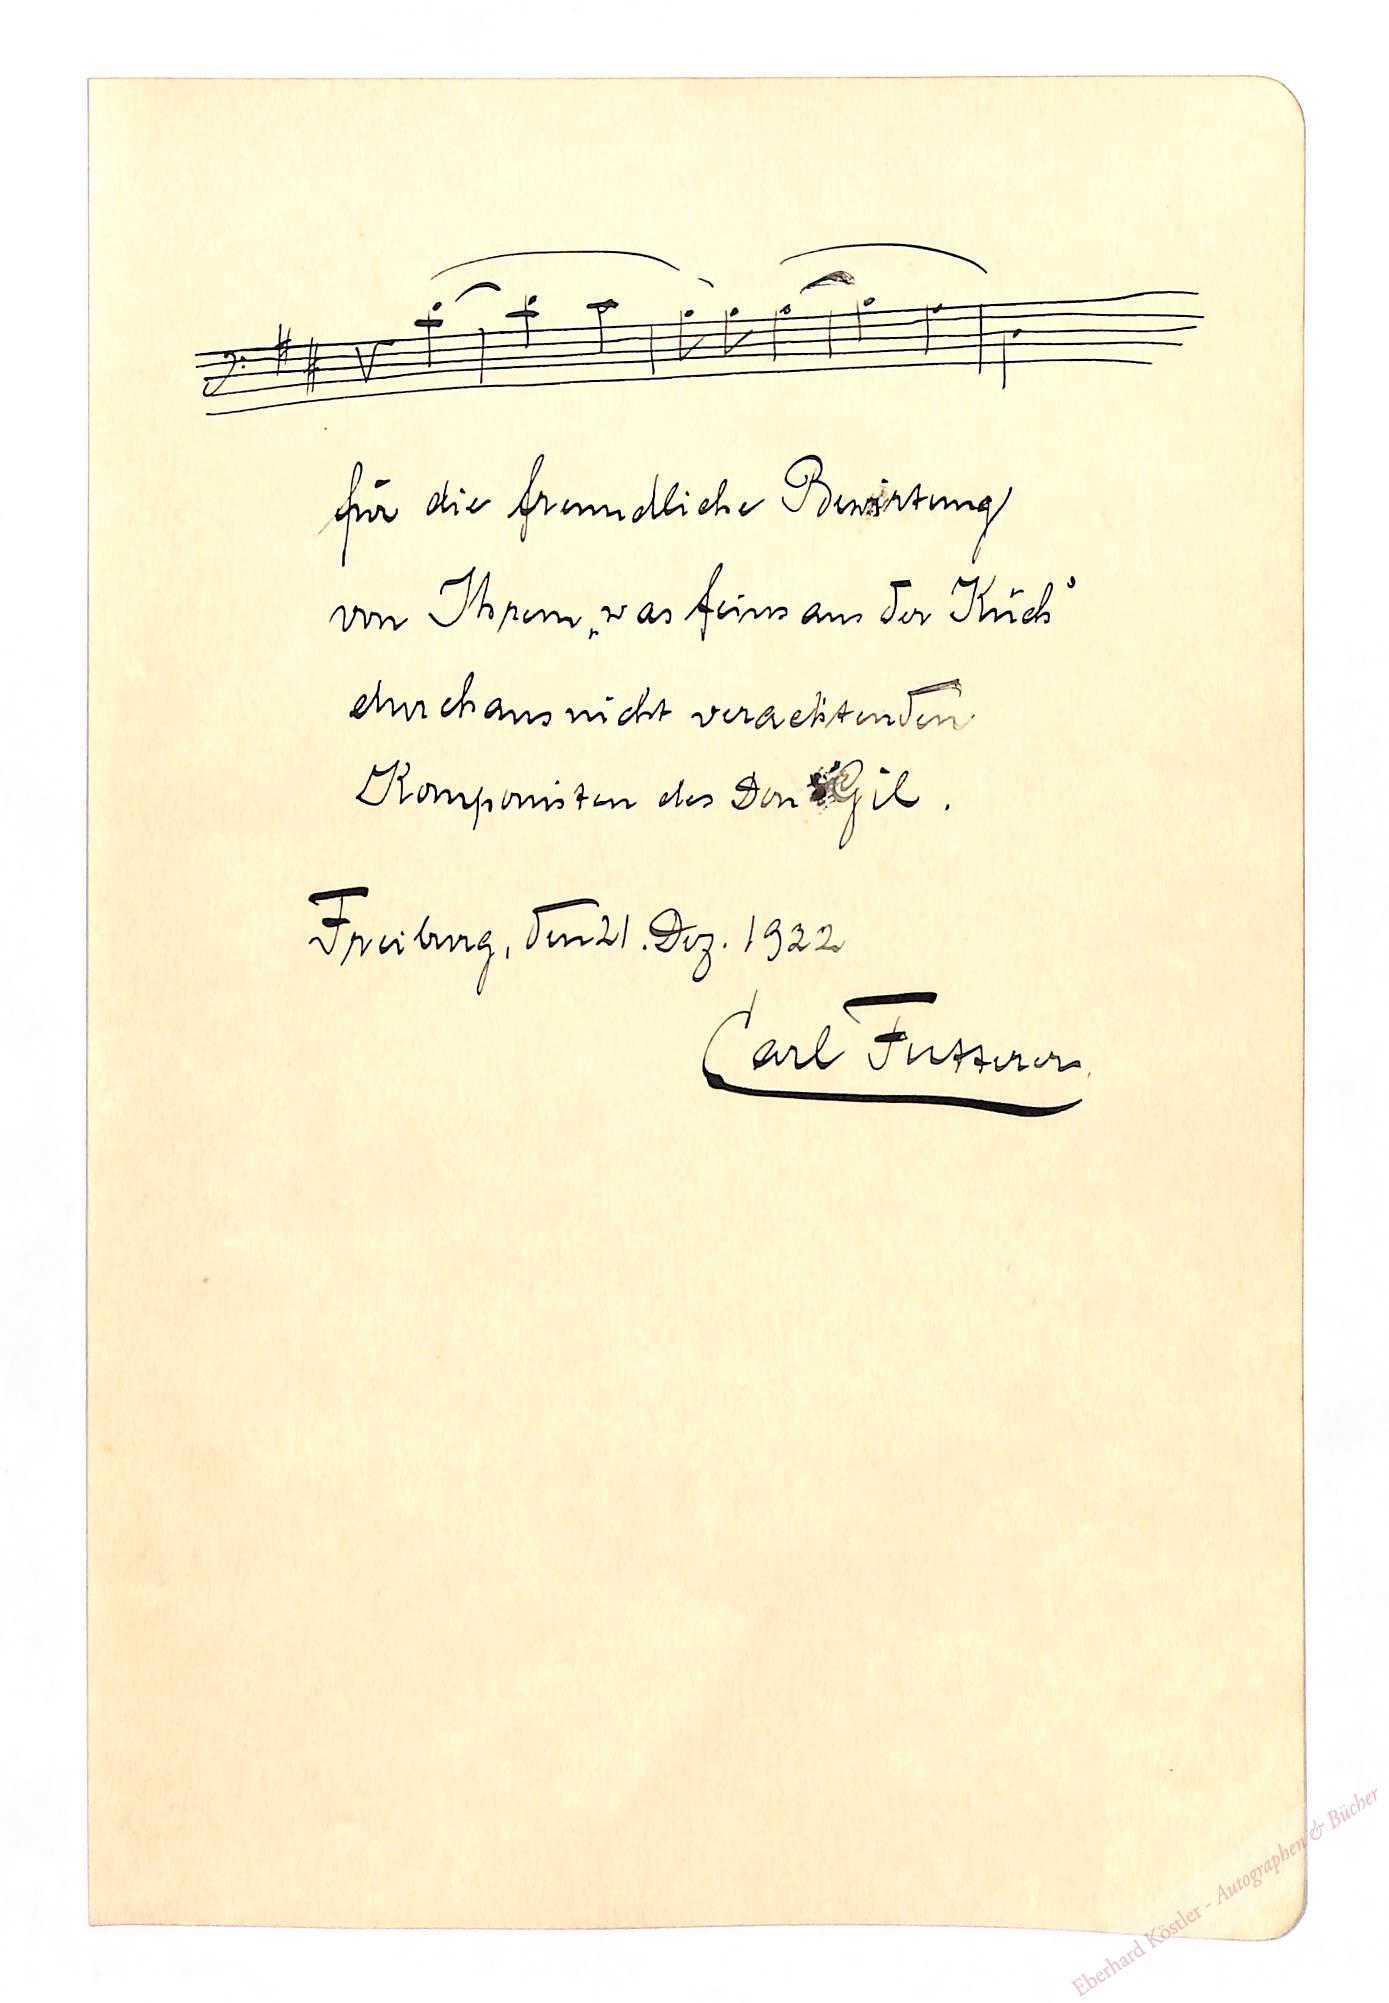 für die freundliche Bewirtung
von Ihrem „was feins aus der Küch"
durchaus nicht verachtenden
Komponisten des Don Gil.
Freiburg, den 21. Dez. 1922
Carl Futterer.
Eberhard Köstler - Autographen & Bücher